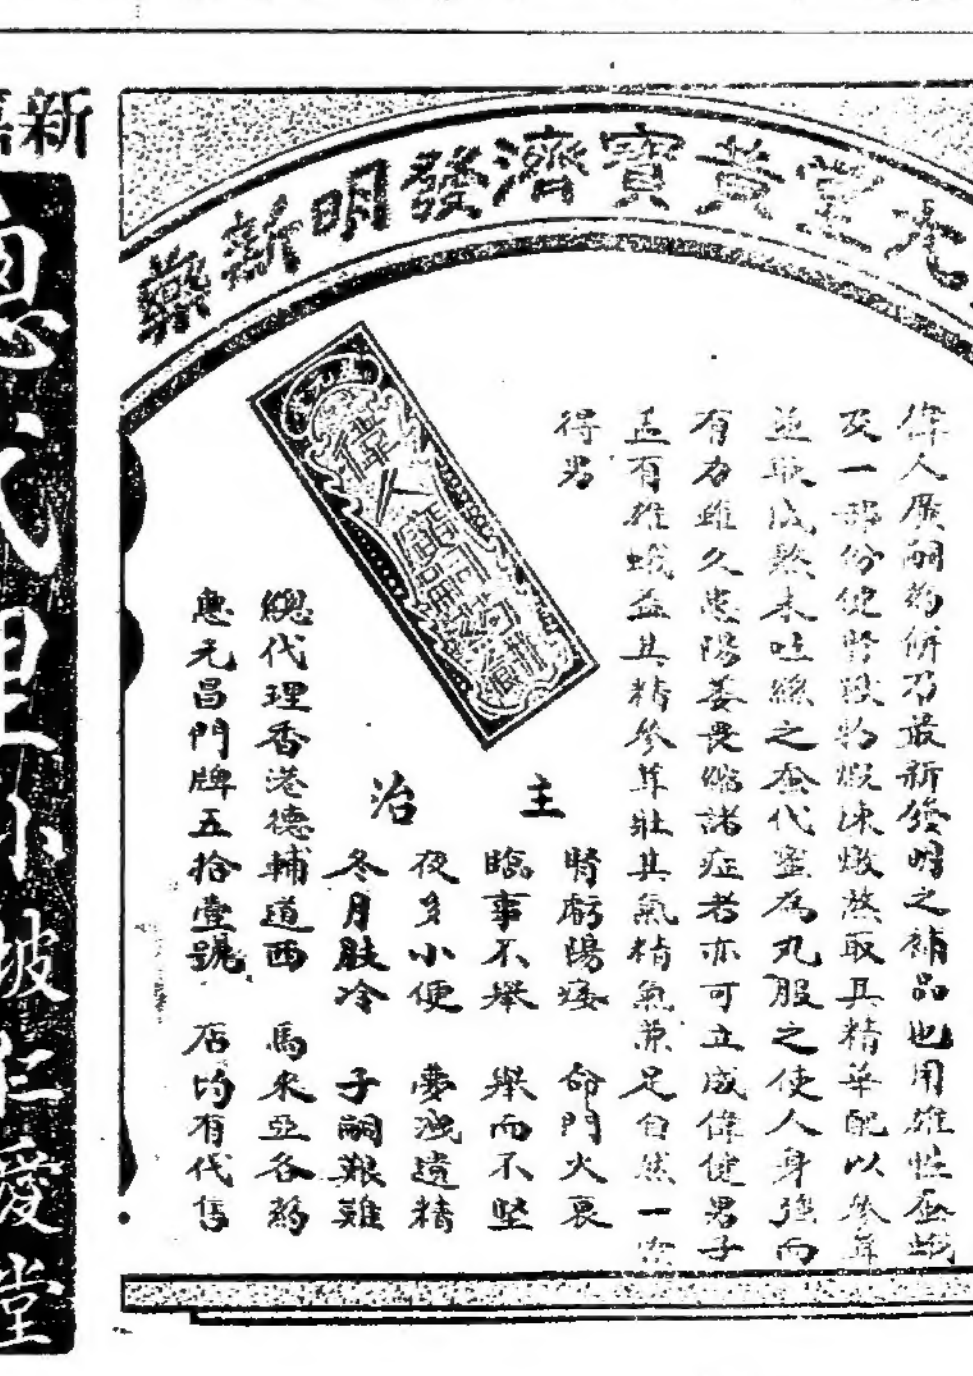 元堂黃寶濟發明新藥
偉人廣嗣藥餅乃最新發明之補品也用雄性蚕蛾
及一部份健腎獸物煆凍燉熬取其精華配以參茸
並取成熬未吐絲之蚕代蜜為丸服之使人身強而
有力雖久患陽萎畏縮諸症者亦可立成偉健男子
盖有雄蛾益其精參茸壯其氣精氣兼足自然一索
得男
偉人廣嗣葯餅
五元
主治
腎虧陽痿 命門火衰
臨事不舉 舉而不堅
夜多小便 夢洩遺精
冬月肢冷 子嗣艱難
總代理香港德輔道西 馬來亞各葯
惠元昌門牌五拾壹號 店均有代售
新
總代理小坡仁愛堂